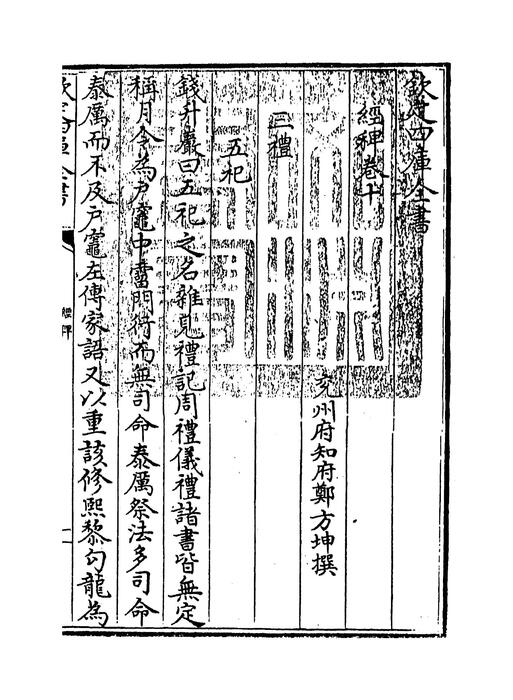 欽定四庫全書
經稗卷十
兖州府知府鄭方坤撰
三禮
五祀
錢升巖曰五祀之名雜見禮記周禮儀禮諸書皆無定
稱月令為户竈中霤門行而無司命泰厲祭法多司命
泰厲而不及户竈左傳家語又以重該修熙黎勾龍為
欽定四庫全書
經稗
一